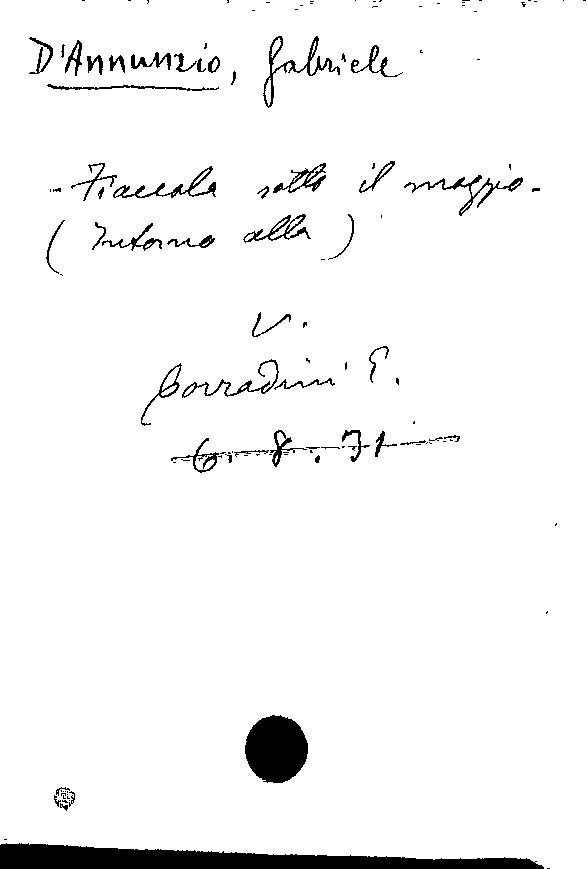 D'Annunzio, Gabriele
- Fiaccola sotto il moggio -
(Intorno alla)
V.
Corradini E.
6. 8. 71